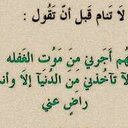 لَا تَنام قَبل أنّ تَقُول :
هُم أجرني مَنَ مَوُت الغَفله
لَا تآخذنيَ مَن الدُنيَآ إلَا وأنت
راضٍ عني